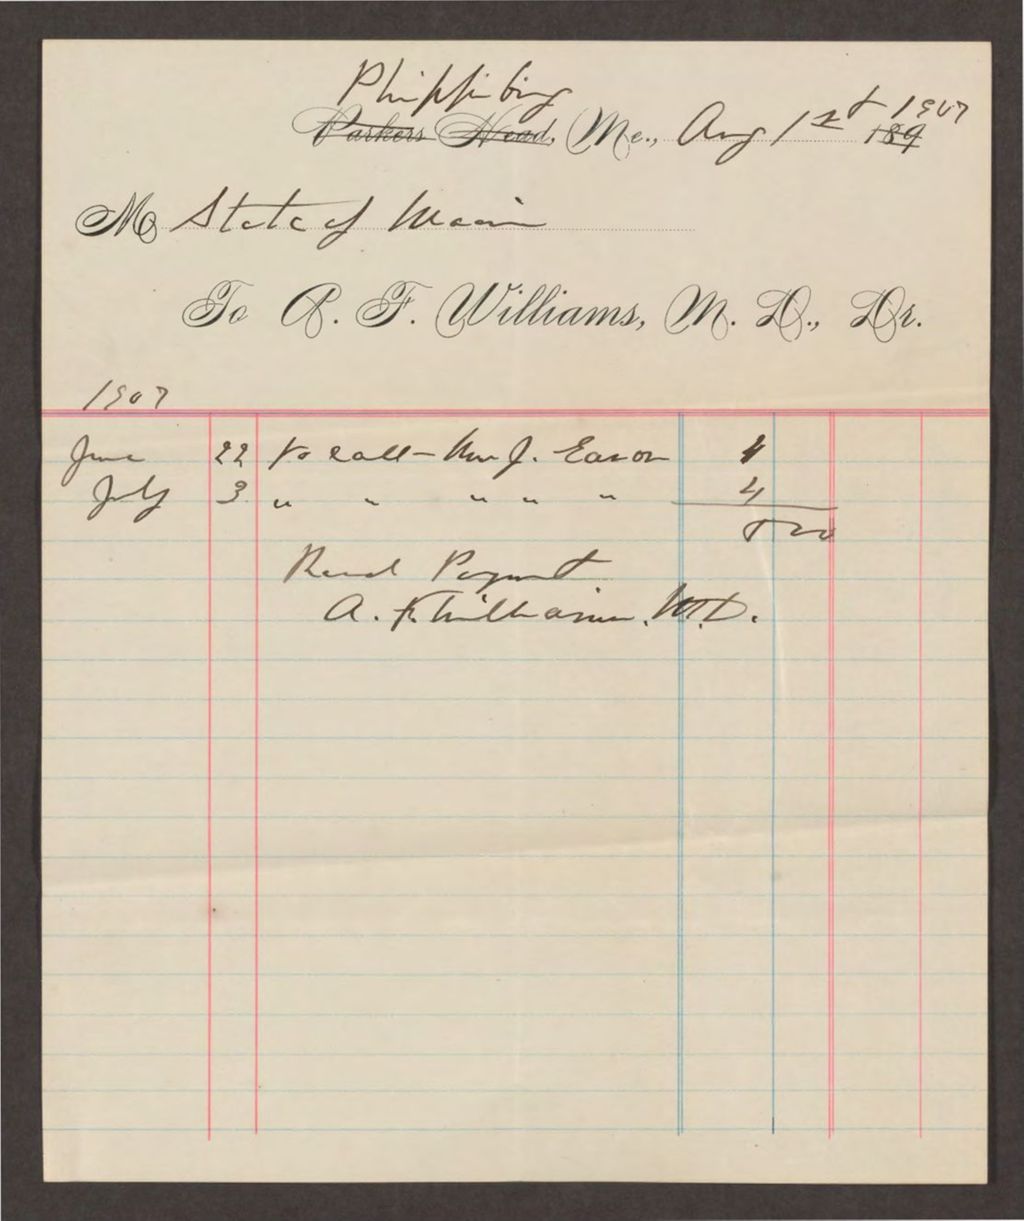 Phippsburg
Parkers Head, Me., Aug 1st 1907 189
M State of Maine
To A. F. Williams, M. D., Dr.
1907
June 22 to call - Wm J. Eason 4
July 3 " " " " " 4
8 00
Recd Payment
A. F. Williams, M.D.